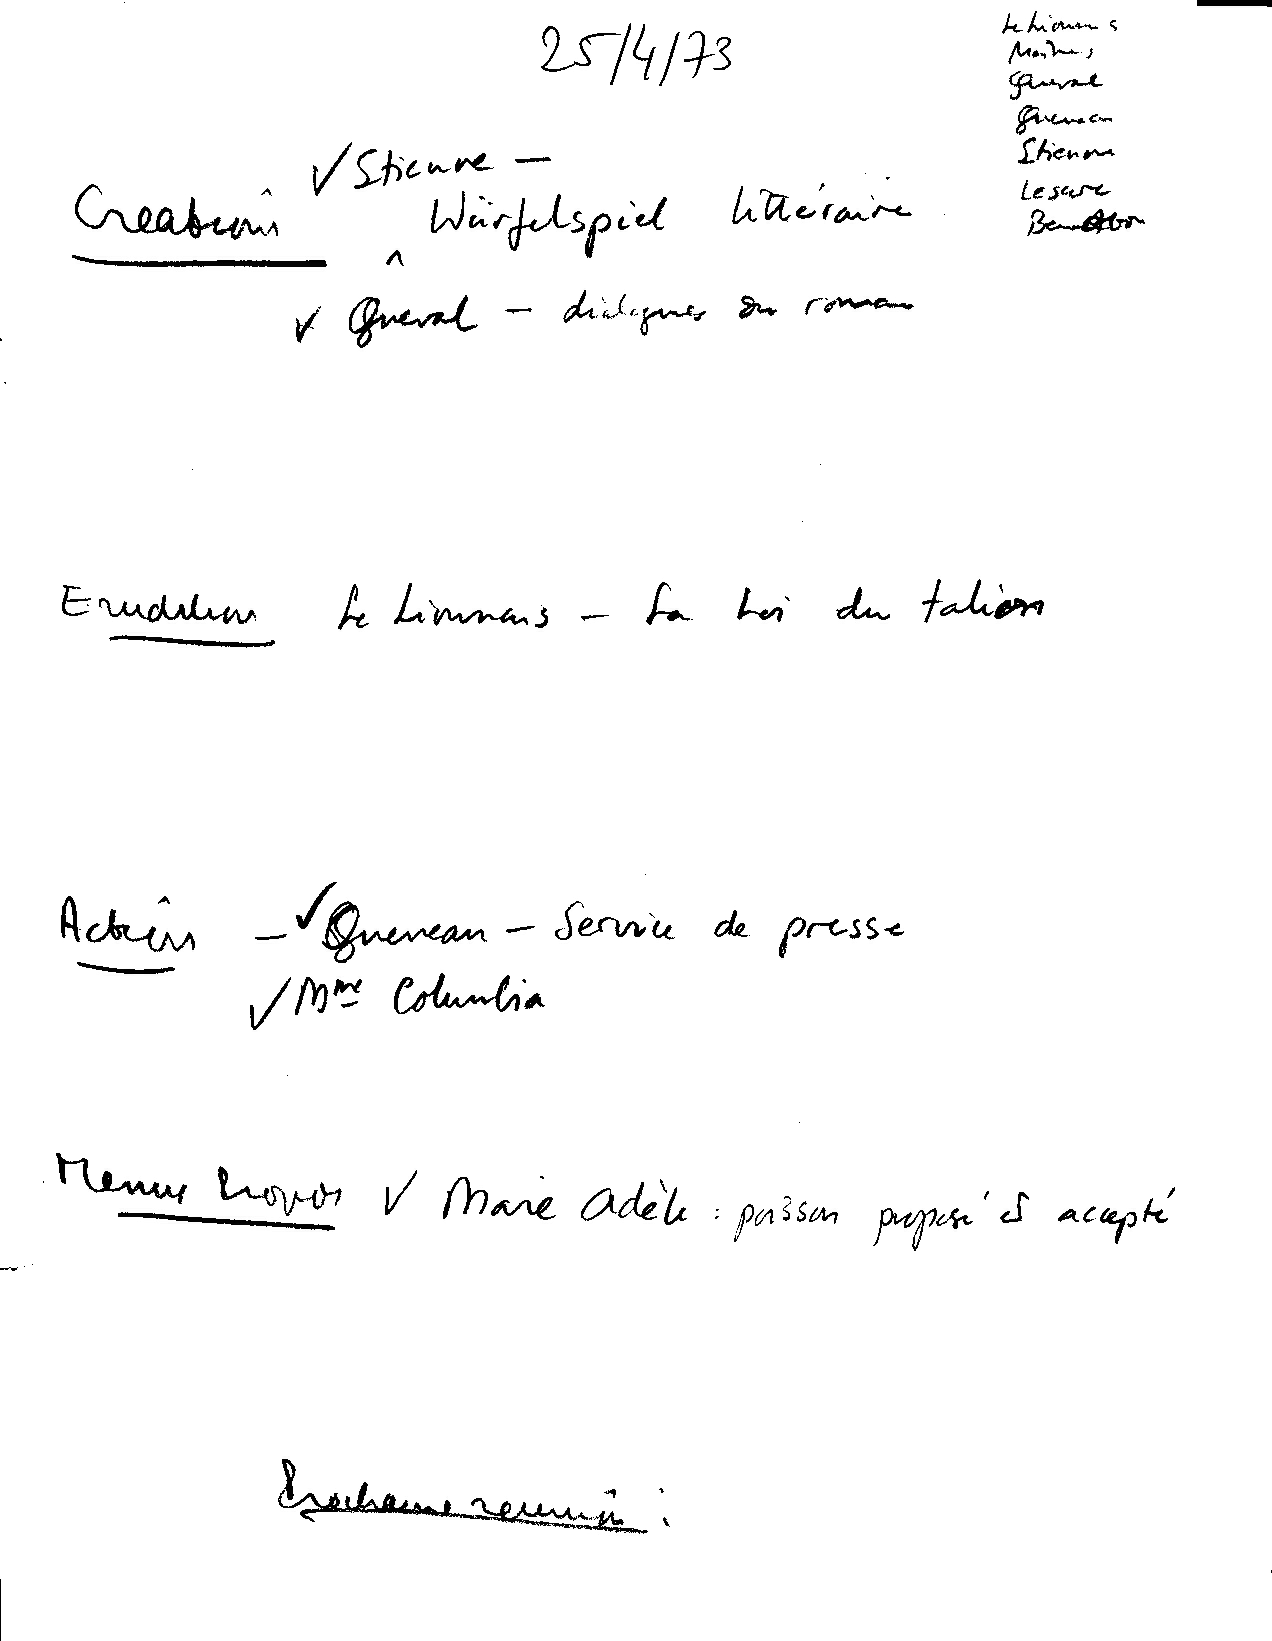 25/4/73
Le Lionnais
Mathews
Queval
Queneau
Stienne
Lescure
Bens
Création
✓ Stienne —
Würfelspiel littéraire
✓ Queval – dialogues du roman
Erudition Le Lionnais – La Loi du talion
Action – ✓ Queneau – Service de presse
✓ Mme Columbia
Menus Propos ✓ Marie Adèle : poisson proposé et accepté
Prochaine réunion :